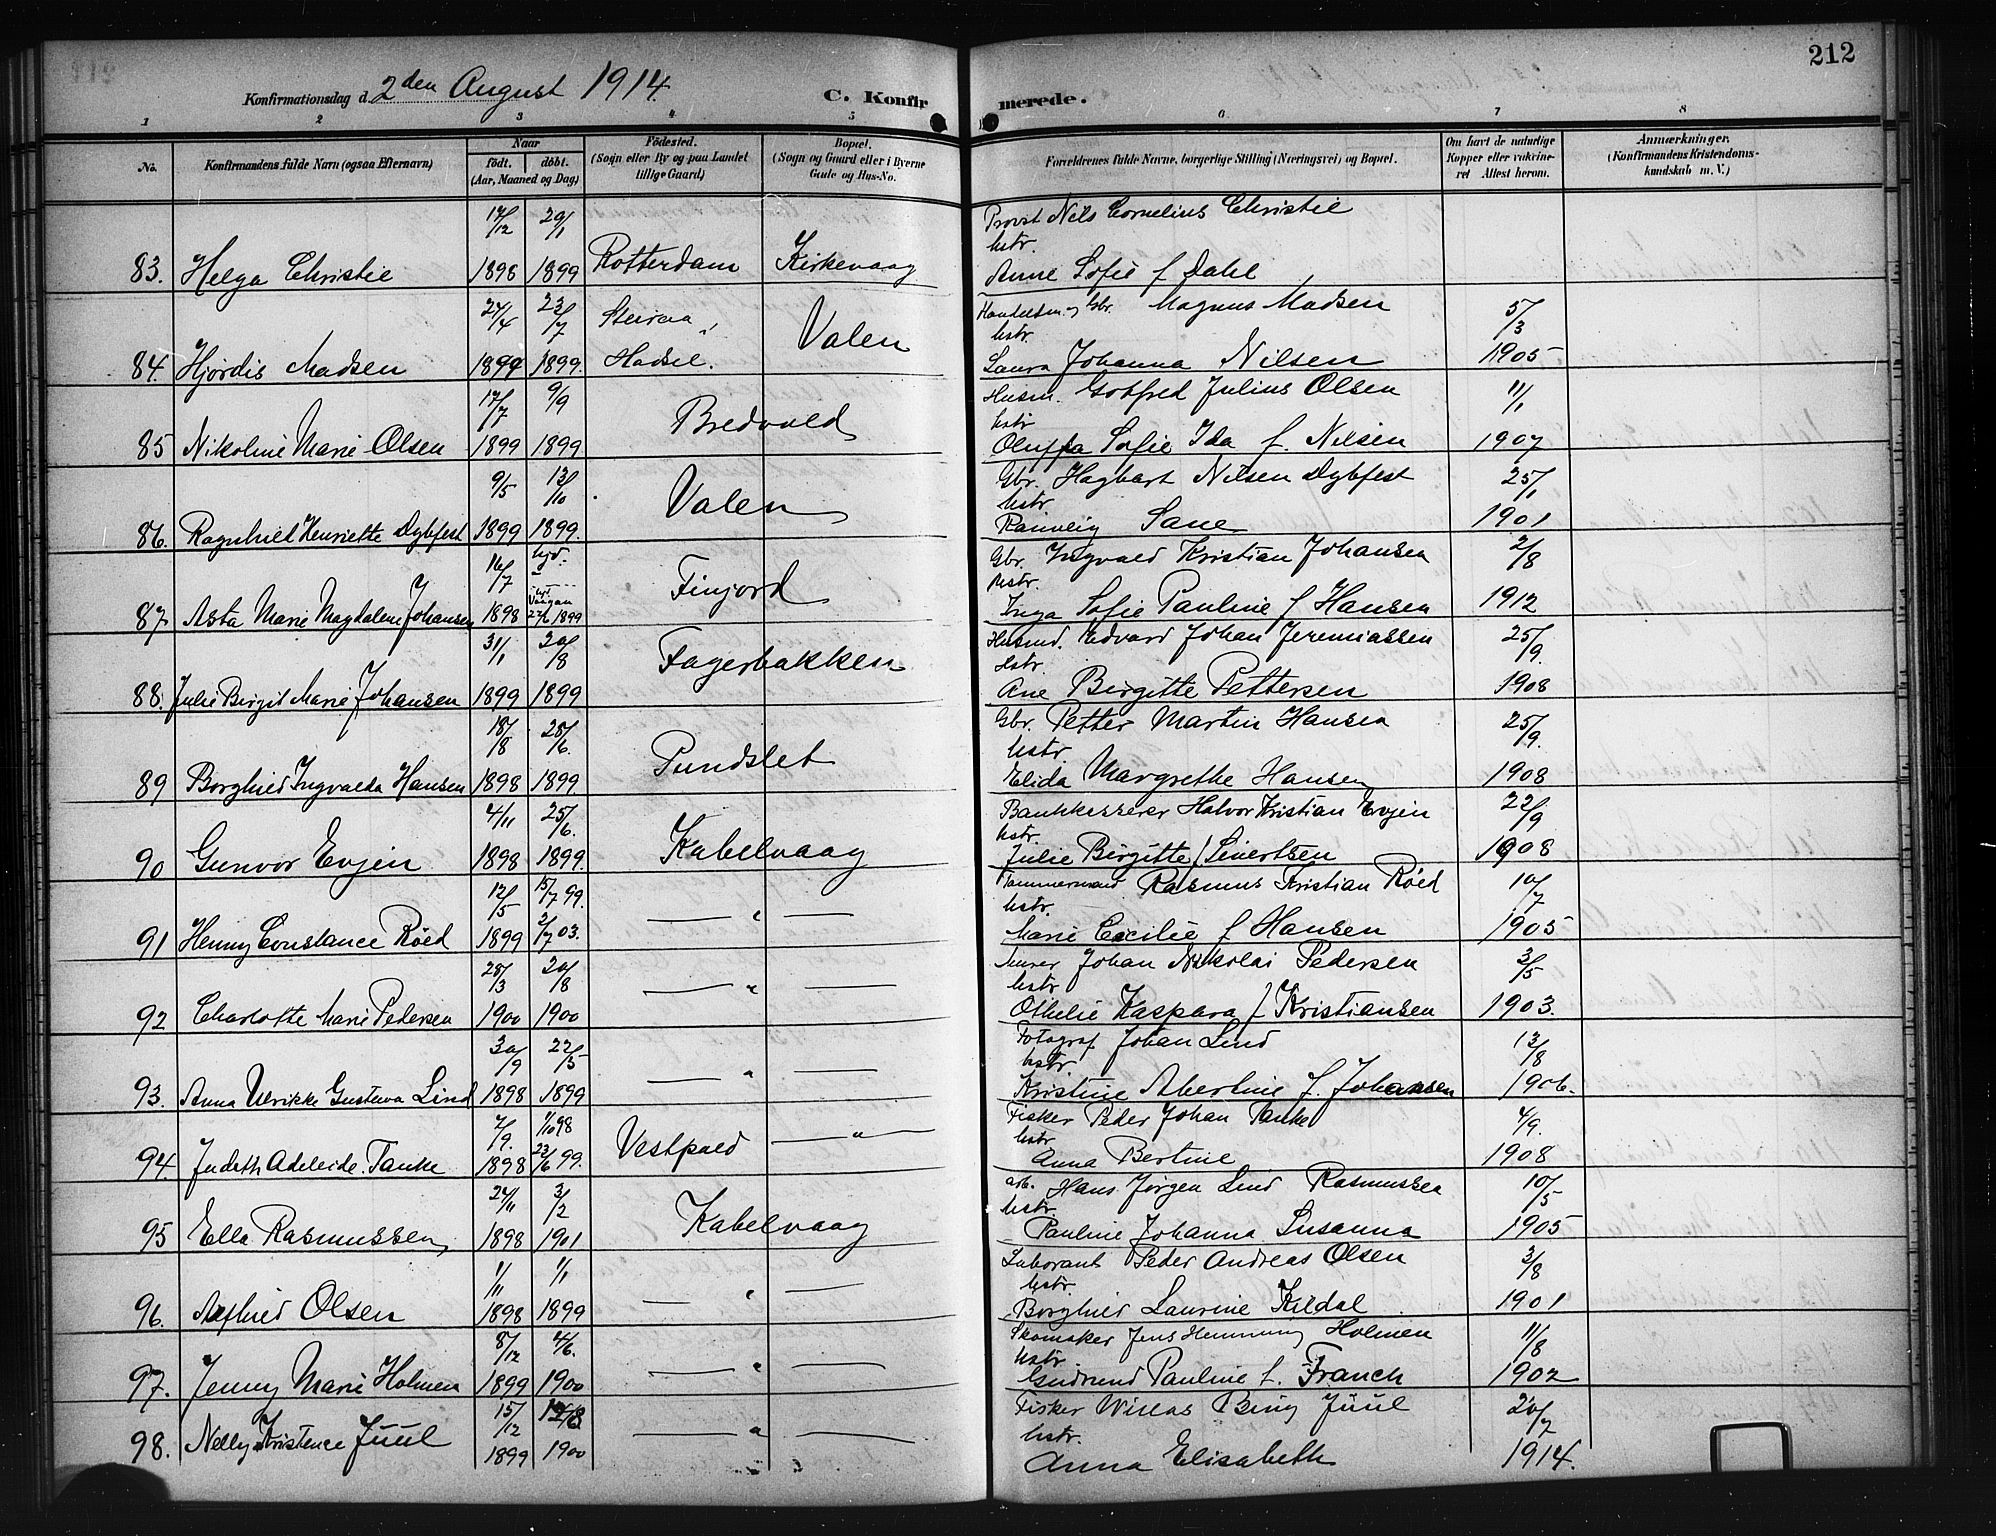 212
Konfirmationsdag d. 2den August 1914.
C. Konfirmerede.
1 2 3 4 5 6 7 8
No.
Konfirmandens fulde Navn (ogsaa Efternavn)
Naar
födt. döbt.
(Aar, Maaned og Dag)
Födested.
(Sogn eller By og paa Landet
tillige Gaard)
Bopæl.
(Sogn og Gaard eller i Byerne
Gade og Hus-No.
Forældrenes fulde Navne, borgerlige Stilling (Næringsvei) og Bopæl.
Om havt de naturlige
Kopper eller vakcine-
ret Attest herom.
Anmærkninger.
(Konfirmandens Kristendoms-
kundskab m. V.)
83. Helga Christie 17/12 1898 29/1 1899 Rotterdam Kirkevaag
Provst Nils Cornelius Christie
hstr.
Anne Sofie f Dahl
84. Hjördis Madsen 24/4 1899 23/7 1899. Steiraa, Hadsel. Valen
Handelsm. og Gbr. Magnus Madsen
hstr.
Laura Johanna Nilsen
5/3 1905
85 Nikoline Marie Olsen 17/7 1899 9/9 1899 Bredvold
Husm. Gotfred Julius Olsen
hstr
Oluffa Sofie Ida f. Nilsen
11/1 1907
86. Ragnhild Henriette Dybfest 9/5 1899 13/10 1899. Valen
Gbr. Hagbart Nilsen Dybfest
hstr
Ranveig Sane
25/1 1901
87 Asta Marie Magdalene Johansen 16/7 1898 hjd. Vaagan 27/6 1899 Finjord
Gbr. Ingvald Kristian Johansen
hstr.
Inga Sofie Pauline f Hansen
2/8 1912
88. Julie Birgit Marie Johansen 31/1 1899 20/8 1899 Fagerbakken
Husmd. Edvard Johan Jeremiassen
Hstr.
Ane Birgitte Pettersen
25/9. 1908
89 Borghild Ingvalda Hansen 18/8 1898 25/6. 1899. Pundslet
Gbr. Petter Martin Hansen
hstr.
Elida Margrethe Hansen
25/9. 1908
90 Gunvor Evjen 4/11 1898 25/6. 1899. Kabelvaag
Bankkasserer Halvor Kristian Evjen
hstr.
Julie Birgitte f Sivertsen
22/9 1908
91 Henny Constance Röed 12/5 1899 15/7 99. 2/7 03. — " —
Tømmermand Rasmus Kristian Röed
hstr.
Marie Cecilie f Hansen
10/7 1905
92 Charlotte Marie Pedersen 25/3 1900 20/8 1900 — " —
Murer Johan Nikolai Pedersen
hstr
Othelie Kaspara f Kristiansen
3/5 1903.
93. Anna Ulrikke Gustava Lind 30/9 1898 22/5 1899 — " —
Fotograf Johan Lind
hstr.
Kristine Albertine f. Johansen
13/8 1906.
94. Judeth Adeleide Tanke 2/9. 1898 1/10 98 23/6 99. Vestpold — " —
Fisker Peder Johan Tanke
hstr
Anna Bertine
4/9. 1908
95 Ella Rasmussen 24/11 1898 3/2 1901 Kabelvaag
arb. Hans Jørgen Lind Rasmussen
hstr.
Pauline Johanna Susanna
10/5 1905
96. Alfhild Olsen 1/11 1898 1/1 1899 — " —
Laborant Peder Andreas Olsen
hstr.
Borghild Laurine Kildal
3/8 1901
97. Jenny Marie Holmen 8/12 1899 4/6. 1900 — " —
Skomaker Jens Hemming Holmen
hstr.
Gudrund Pauline f. Franck
11/8 1902
98. Nelly Kristence Juul 15/12 1899 12/8 1900 — " —
Fisker Niklas Bing Juul
hstr.
Anna Elisabeth
20/7 1914.